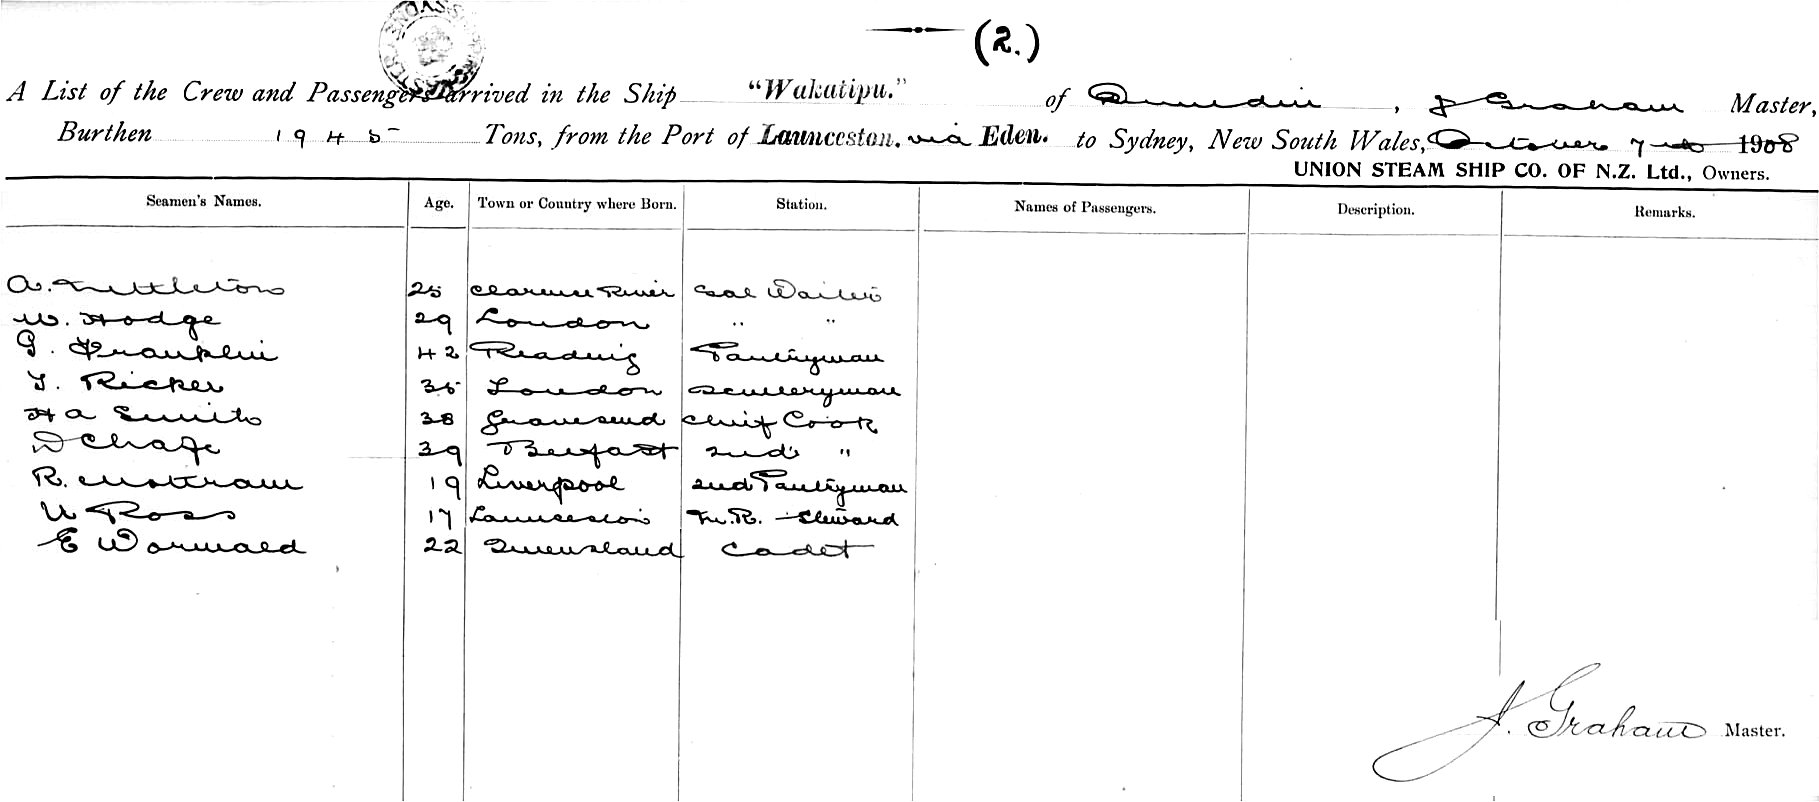 (2.)
A List of the Crew and Passengers arrived in the Ship "Wakatipu." of Dunedin, J Graham Master,
Burthen 1945 Tons, from the Port of Launceston. via Eden. to Sydney, New South Wales, October 7th 1908
UNION STEAM SHIP CO. OF N.Z. Ltd., Owners.
Seamen's Names. Age. Town or Country where Born. Station. Names of Passengers. Description. Remarks.
A. Nettleton 25 Clarence River Sal Waiter
W. Hodge 29 London " "
G. Franklin 42 Reading Pantryman
T. Ricker 35 London Sculleryman
H A Smith 38 Gravesend Chief Cook
D Chafe 39 Belfast 2nd "
R. Mottram 19 Liverpool 2nd Pantryman
U Ross 17 Launceston M.R. Steward
E Wormald 22 Queensland Cadet
J. Graham Master.